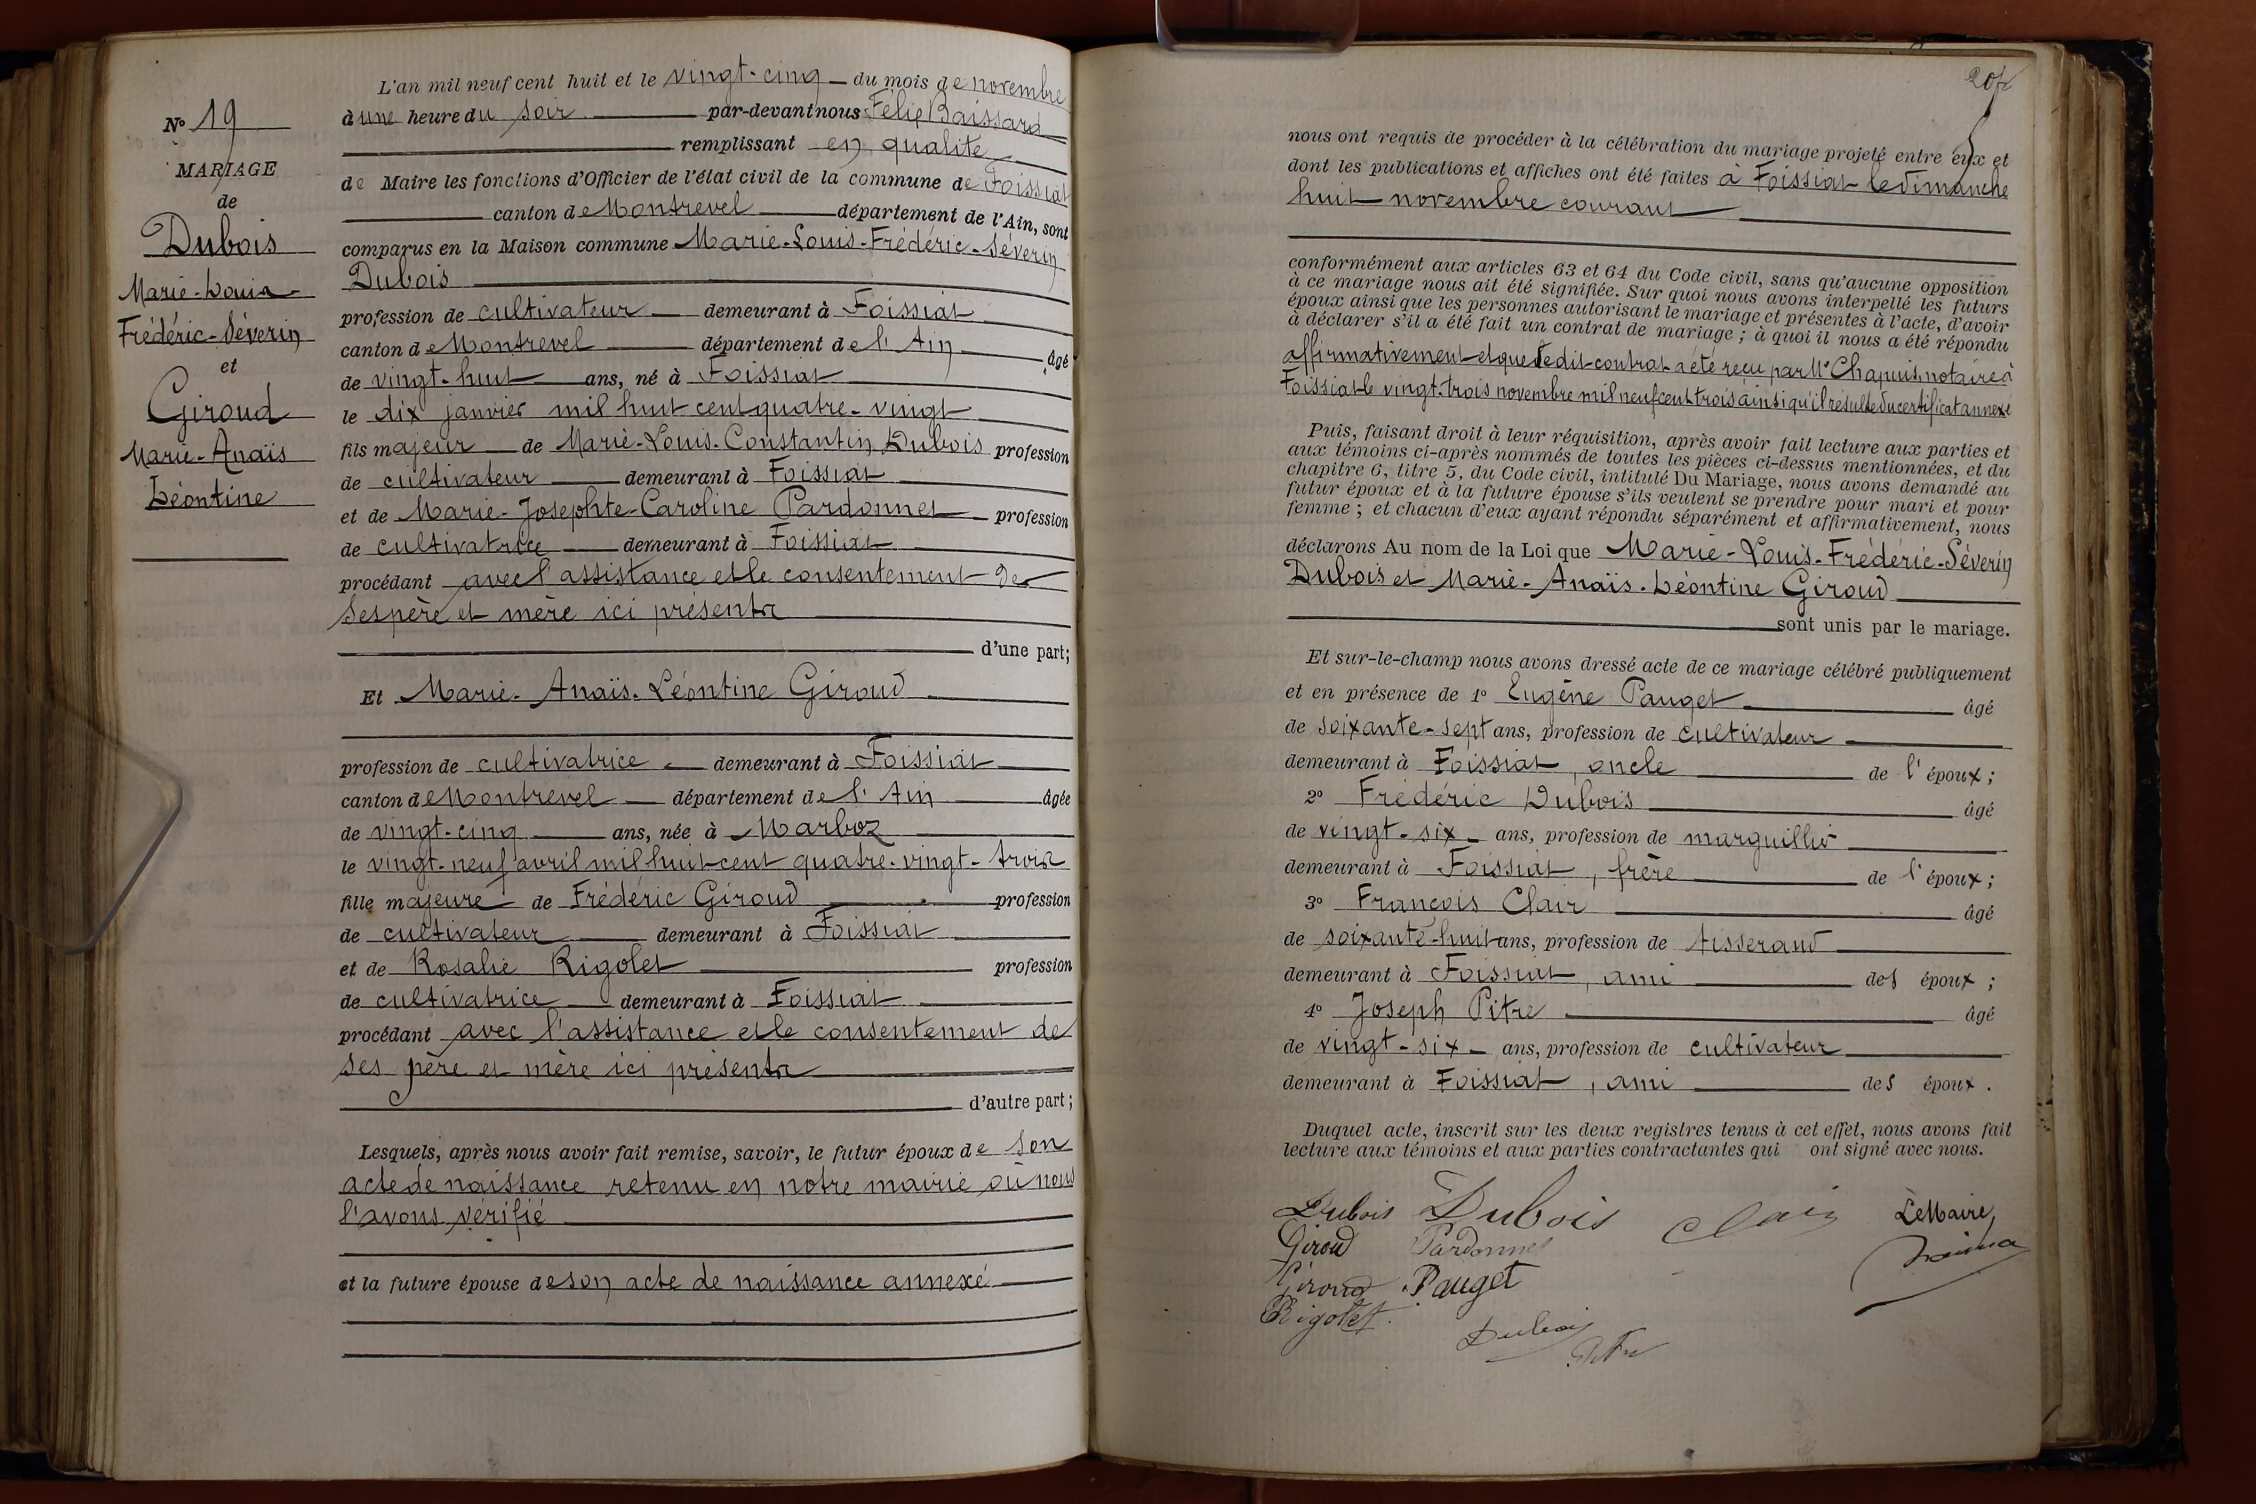 N° 19
MARIAGE
de
Dubois
Marie-Louis-
Frédéric-Séverin
et
Giroud
Marie-Anaïs
Léontine
L'an mil neuf cent huit et le vingt-cinq du mois de novembre
à une heure du soir par-devant nous Félix Baissard
remplissant en qualité
de Maire les fonctions d'Officier de l'état civil de la commune de Foissiat
canton de Montrevel département de l'Ain, sont
comparus en la Maison commune Marie-Louis-Frédéric-Séverin
Dubois
profession de cultivateur demeurant à Foissiat
canton de Montrevel département de l'Ain âgé
de vingt-huit ans, né à Foissiat
le dix janvier mil huit cent quatre-vingt
fils majeur de Marie-Louis-Constantin Dubois profession
de cultivateur demeurant à Foissiat
et de Marie-Josephte-Caroline Pardonnet profession
de cultivatrice demeurant à Foissiat
procédant avec l'assistance et le consentement de
ses père et mère ici présents
d'une part;
Et Marie-Anaïs-Léontine Giroud
profession de cultivatrice demeurant à Foissiat
canton de Montrevel département de l'Ain âgée
de vingt-cinq ans, née à Marboz
le vingt-neuf avril mil huit cent quatre-vingt-trois
fille majeure de Frédéric Giroud profession
de cultivateur demeurant à Foissiat
et de Rosalie Rigolet profession
de cultivatrice demeurant à Foissiat
procédant avec l'assistance et le consentement de
ses père et mère ici présents
d'autre part;
Lesquels, après nous avoir fait remise, savoir, le futur époux de son
acte de naissance retenu en notre mairie où nous
l'avons vérifié
et la future épouse de son acte de naissance annexé
nous ont requis de procéder à la célébration du mariage projeté entre eux et
dont les publications et affiches ont été faites à Foissiat le dimanche
huit novembre courant
conformément aux articles 63 et 64 du Code civil, sans qu'aucune opposition
à ce mariage nous ait été signifiée. Sur quoi nous avons interpellé les futurs
époux ainsi que les personnes autorisant le mariage et présentes à l'acte, d'avoir
à déclarer s'il a été fait un contrat de mariage; à quoi il nous a été répondu
affirmativement et que ledit contrat a été reçu par Me Chapuis, notaire à
Foissiat le vingt-trois novembre mil neuf cent trois ainsi qu'il résulte du certificat annexé
Puis, faisant droit à leur réquisition, après avoir fait lecture aux parties et
aux témoins ci-après nommés de toutes les pièces ci-dessus mentionnées, et du
chapitre 6, titre 5, du Code civil, intitulé Du Mariage, nous avons demandé au
futur époux et à la future épouse s'ils veulent se prendre pour mari et pour
femme; et chacun d'eux ayant répondu séparément et affirmativement, nous
déclarons Au nom de la Loi que Marie-Louis-Frédéric-Séverin
Dubois et Marie-Anaïs-Léontine Giroud
sont unis par le mariage.
Et sur-le-champ nous avons dressé acte de ce mariage célébré publiquement
et en présence de 1° Eugène Pauget âgé
de soixante-sept ans, profession de cultivateur
demeurant à Foissiat, oncle de l'époux;
2° Frédéric Dubois âgé
de vingt-six ans, profession de marguillier
demeurant à Foissiat, frère de l'époux;
3° François Clair âgé
de soixante-huit ans, profession de tisserand
demeurant à Foissiat, ami des époux;
4° Joseph Pitre âgé
de vingt-six ans, profession de cultivateur
demeurant à Foissiat, ami des époux.
Duquel acte, inscrit sur les deux registres tenus à cet effet, nous avons fait
lecture aux témoins et aux parties contractantes qui ont signé avec nous.
Dubois Dubois Clair Le Maire,
Giroud Pardonnet
Giroud Pauget
Rigolet
Dubois
Pitre